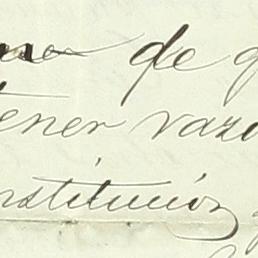 de q
ener razo
nstitución